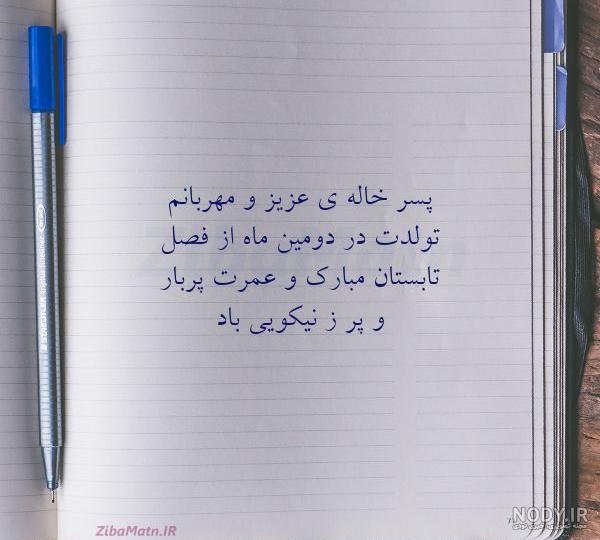 پسر خاله ی عزیز و مهربانم
تولدت در دومین ماه از فصل
تابستان مبارک و عمرت پربار
و پر ز نیکویی باد
ZibaMatn.IR
NODY.IR